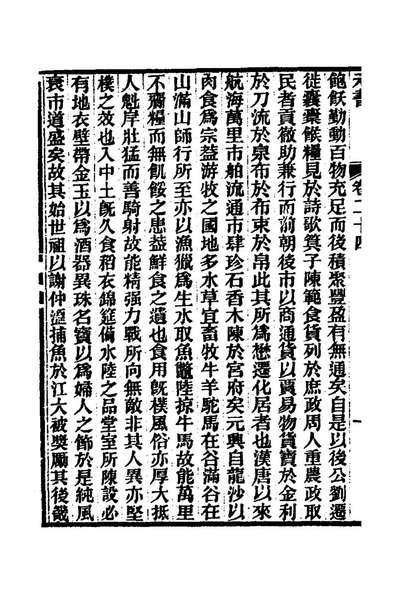 元書 卷二十四 一
飽飫勤動百物充足而後積聚豐盈有無通矣自是以後公劉遷
徙囊橐餱糧見於詩歌箕子陳範食貨列於庶政周人重農政取
民者貢徹助兼行而前朝後市以商通貨以賈易物貨寶於金利
於刀流於泉布於布束於帛此其所爲懋遷化居者也漢唐以來
航海萬里市舶流通市肆珍石香木陳於宮府矣元興自龍沙以
肉食爲宗益游牧之國地多水草宜畜牧牛羊駝馬在谷滿谷在
山滿山師行所至亦以漁獵爲生水取魚鼈陸掠牛馬故能萬里
不齎糧而無飢餒之患益鮮食之遺也食用旣樸風俗亦厚大抵
人魁岸壯猛而善騎射故能精强力戰所向無敵非其人異亦堅
樸之效也入中土旣久食稻衣錦筵備水陸之品堂室所陳設必
有地衣壁帶金玉以爲酒器異珠名寶以爲婦人之飾於是純風
衰市道盛矣故其始世祖以謝仲溫捕魚於江大被獎勵其後畿